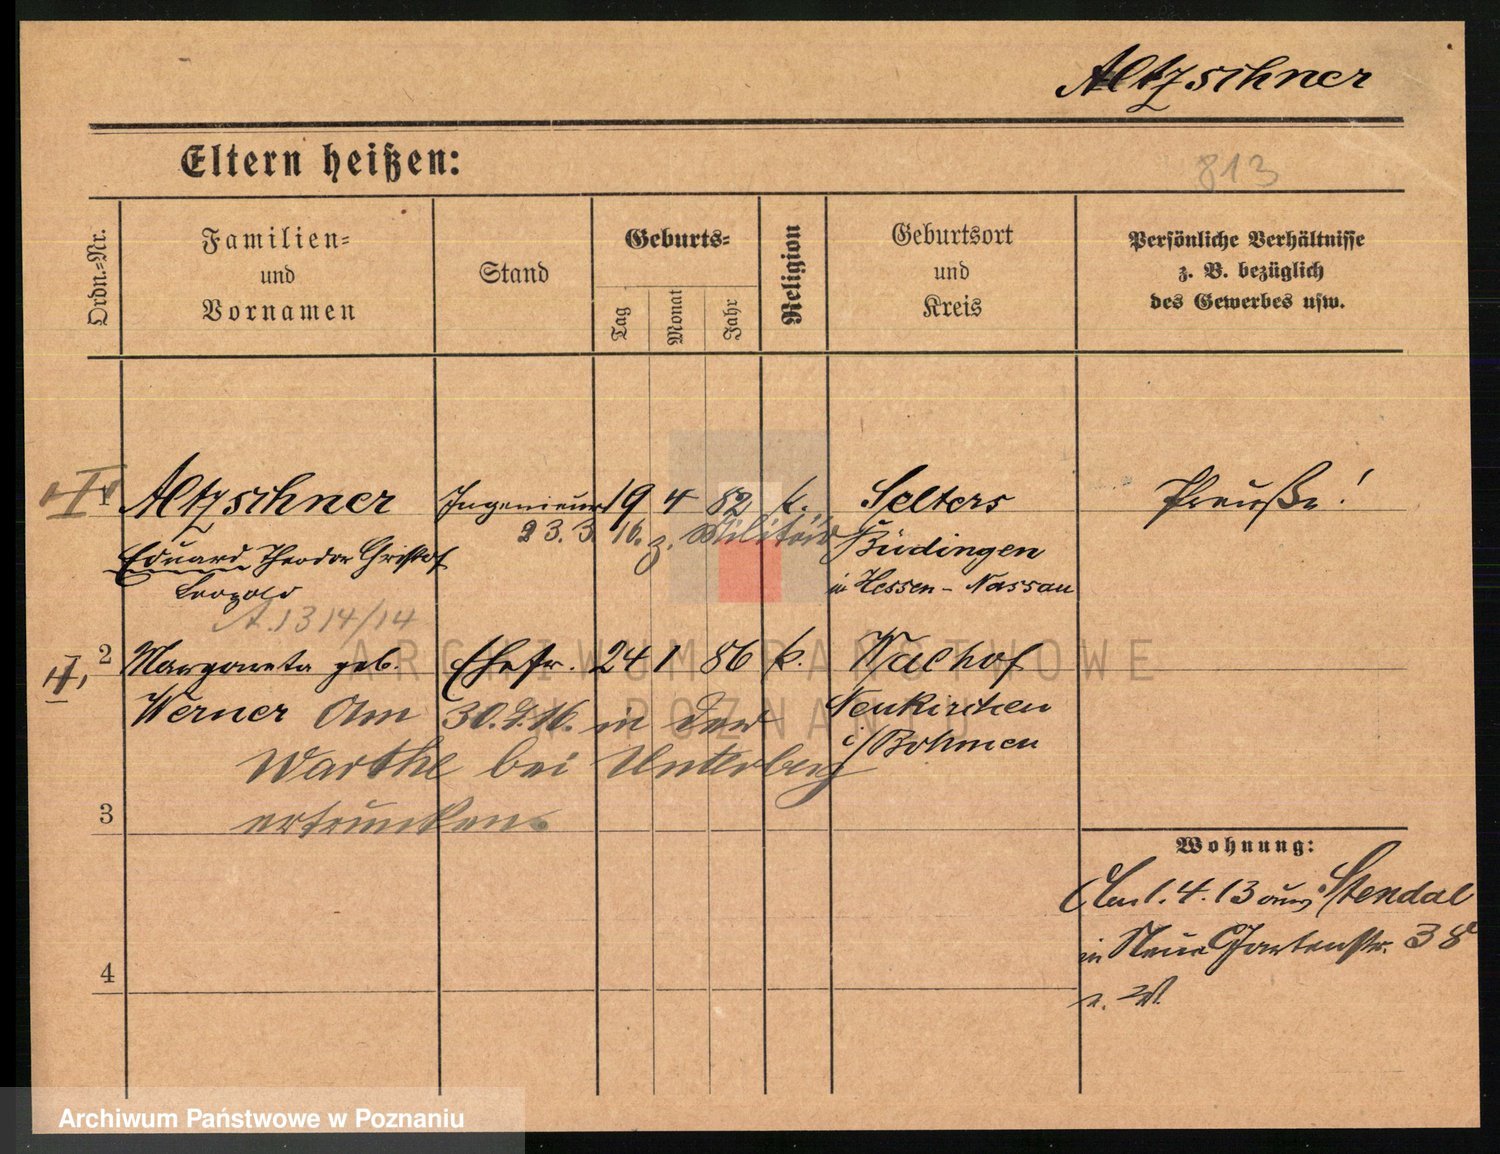 Altzschner
Eltern heißen:
813
Ordn.=Nr.
Familien=
und
Vornamen
Stand
Geburts=
Tag
Monat
Jahr
Religion
Geburtsort
und
Kreis
Persönliche Verhältnisse
z. B. bezüglich
des Gewerbes usw.
I 1 Altzschner Ingenieur 19 4 82 k. Selters Preuße!
23. 3. 16. z. Militär Büdingen
Eduard Theodor Christof in Hessen-Nassau
Leopold
A. 1314/14
II, 2 Margareta geb. Ehefr. 24 1 86 k. Walhof
Werner Am 30. 7. 16. in der Neukirchen
Warthe bei Unterberg i/Böhmen
ertrunken.
3
Wohnung:
1. 4. 13 aus Stendal
in Neue Gartenstr. 38
4
ARCHIWUM PAŃSTWOWE
W POZNANIU
Archiwum Państwowe w Poznaniu